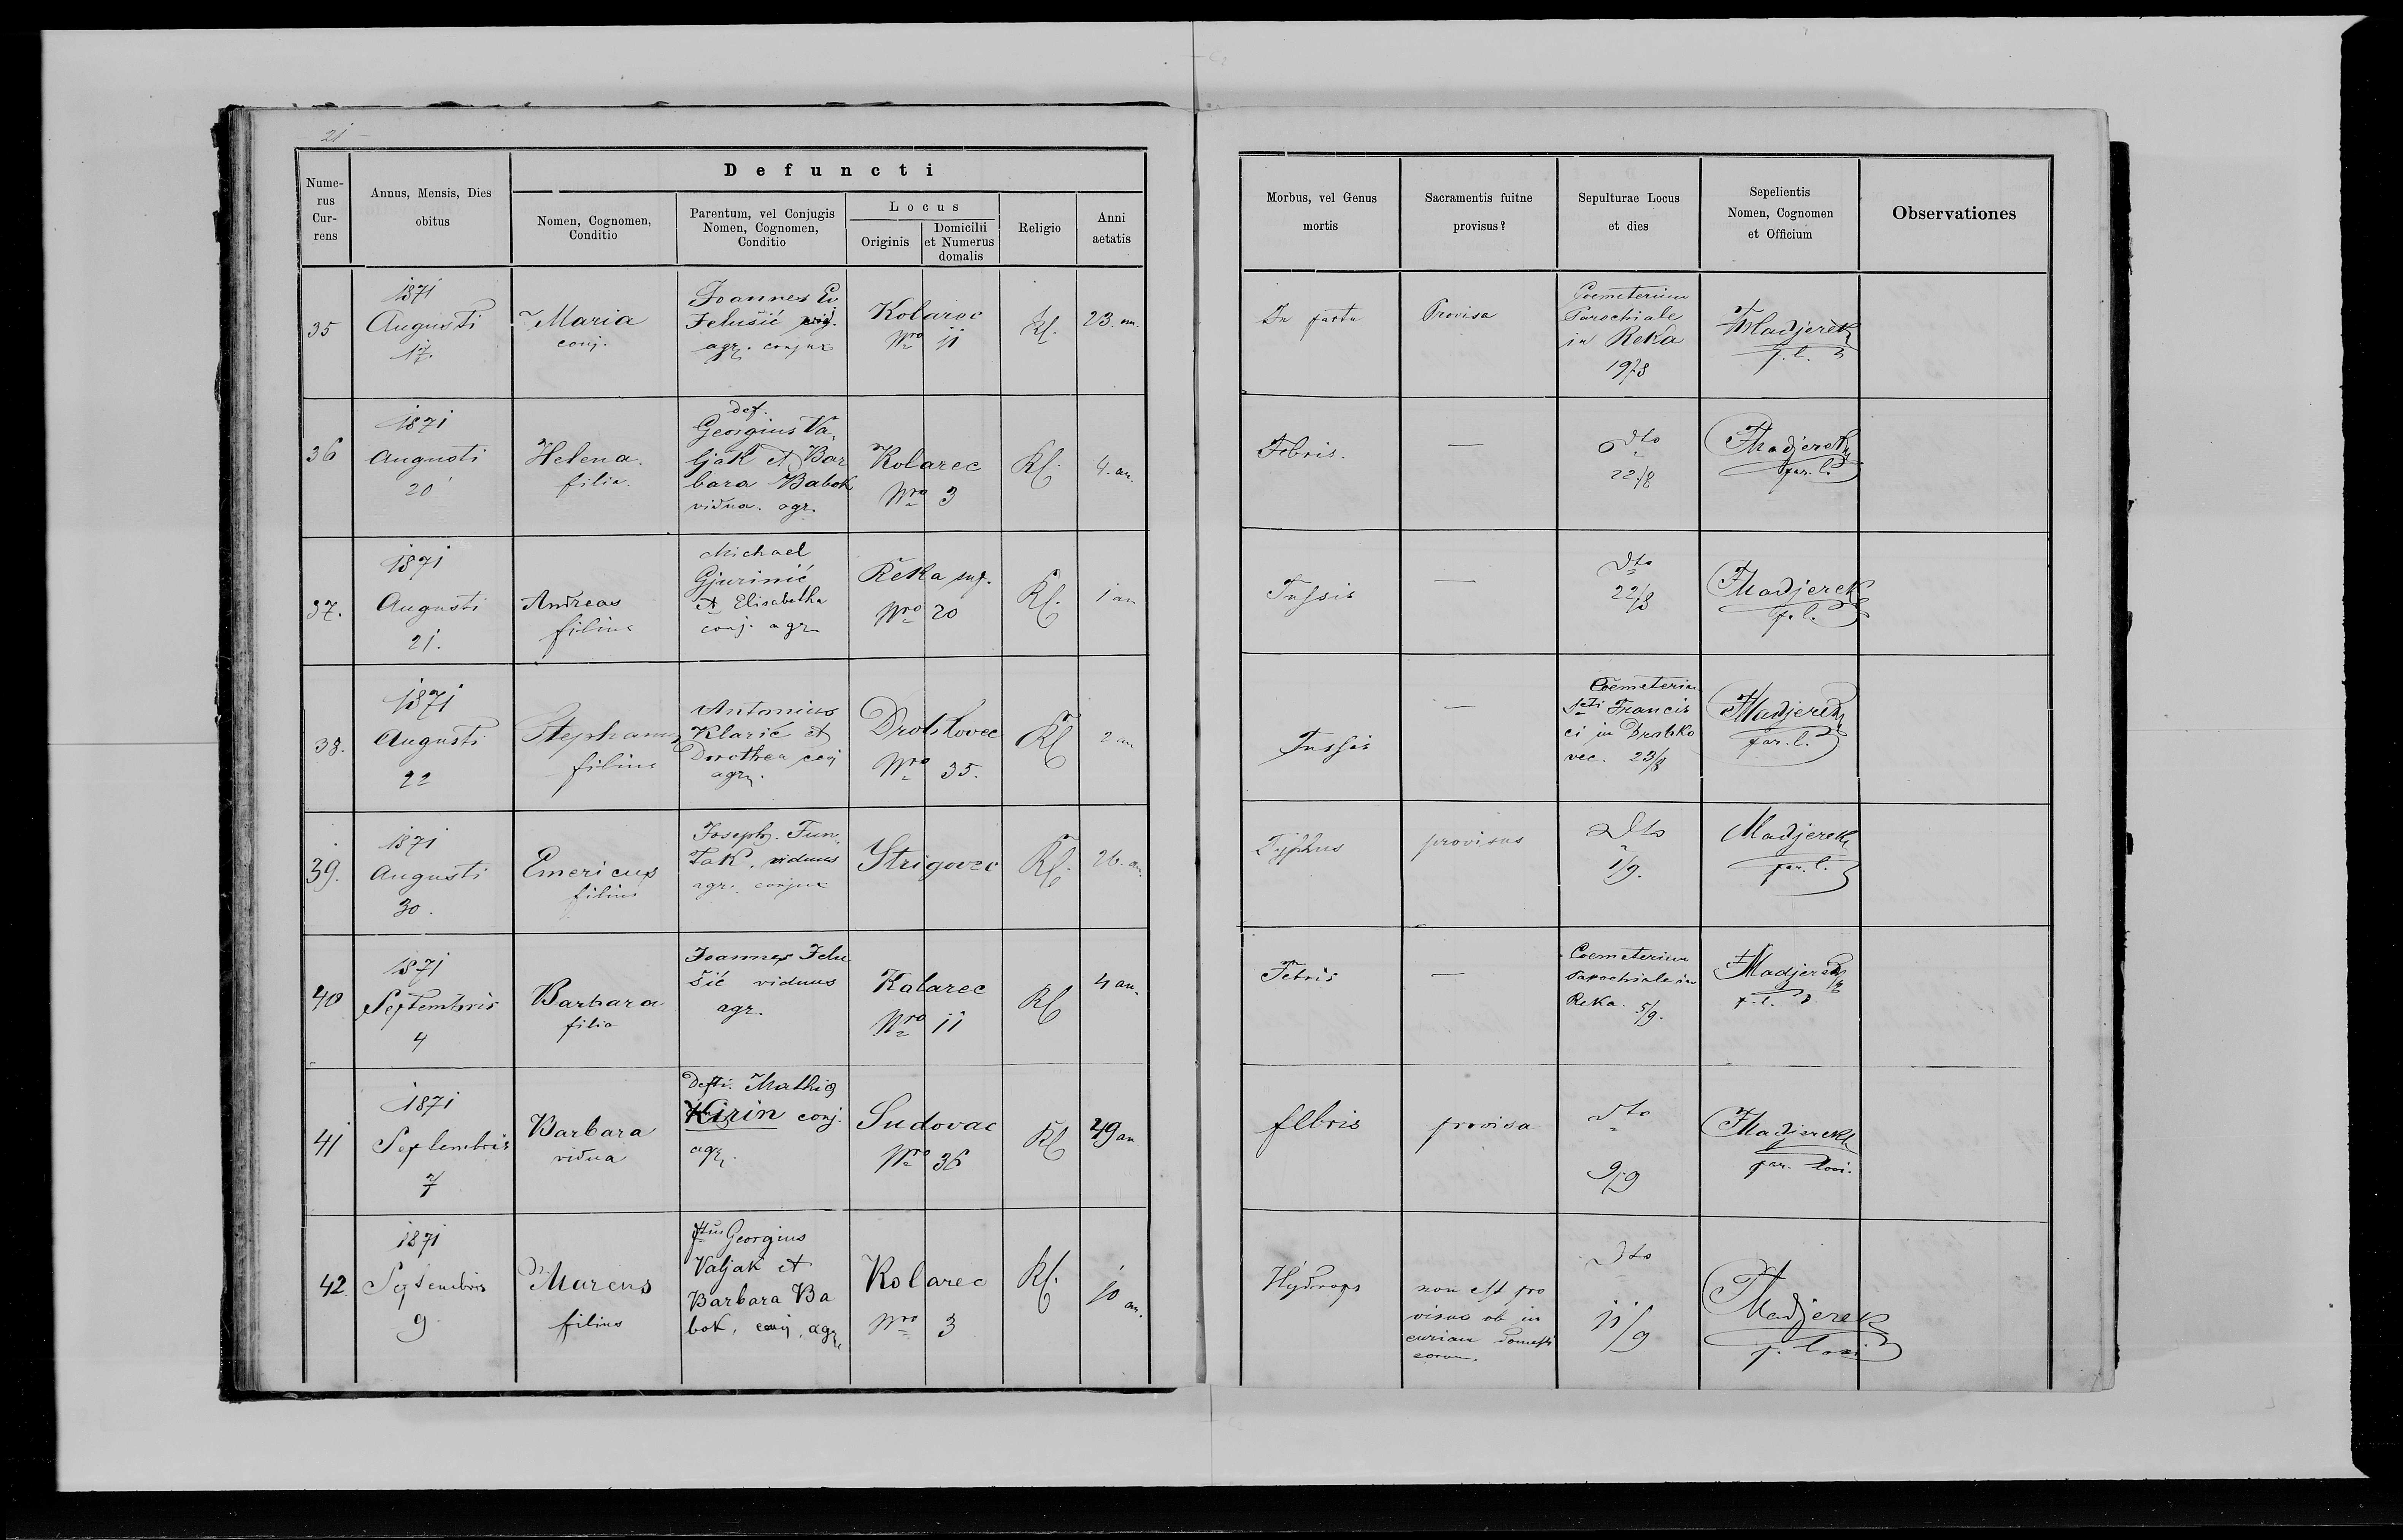 21
Defuncti
Nume-
rus
Cur-
rens
Annus, Mensis, Dies
obitus
Nomen, Cognomen,
Conditio
Parentum, vel Conjugis
Nomen, Cognomen,
Conditio
Locus
Originis
Domicilii
et Numerus
domalis
Religio
Anni
aetatis
Morbus, vel Genus
mortis
Sacramentis fuitne
provisus?
Sepulturae Locus
et dies
Sepelientis
Nomen, Cognomen
et Officium
Observationes
35
1871
Augusti
17.
Maria
conj.
Joannes
Jelušić
agr. conjux
Kolarec
Nro 11
23. an.
In partu
Provisa
Coemeterium
Parochiale
in Reka
19/8
Madjerek
p. l.
36
1871
Augusti
20
Helena.
filia.
def.
Georgius Va-
ljak et Bar
bara Babok
vidua. agr.
Kolarec
Nro 3
4. an.
Febris.
—
dto
22/8
Madjerek
par. l.
37.
1871
Augusti
21.
Andreas
filius
Michael
Gjurinić
et Elisabetha
conj. agr.
Reka sup.
Nro 20
1 an
Tussis
—
dto
22/8
Madjerek
p. l.
38.
1871
Augusti
22
Stephanus
filius
Antonius
Klarić et
Dorothea conj
agr.
Drobkovec
Nro 35.
2 an
Tussis
—
Coemeterium
Sti Francis
ci in Drobko
vec. 23/8
Madjerek
par. l.
39.
1871
Augusti
30.
Emericus
filius
Joseph. Fun-
tak, viduus
agr. conjux
Strigovec
26. an.
Typhus
provisus
Dto
1/9.
Madjerek
par. l.
40
1871
Septembris
4
Barbara
filia
Joannes Jelu
šić viduus
agr.
Kolarec
Nro 11
4 an.
Febris
—
Coemeterium
Parochiale in
Reka. 5/9.
Madjerek
p. l.
41
1871
Septembris
7
Barbara
vidua
Defti. Mathia
Kirin conj.
agr.
Sudovac
Nro 36
49 an
febris
provisa
dto
9/9
Madjerek
par. loci.
42.
1871
Septembris
9
Marcus
filius
Georgius
Valjak et
Barbara Ba
bok, conj. agr.
Kolarec
Nro 3
10 an.
Hydrops
non est pro
visus ob in
curiam domesti
corum.
Dto
11/9
Madjerek
p. loci